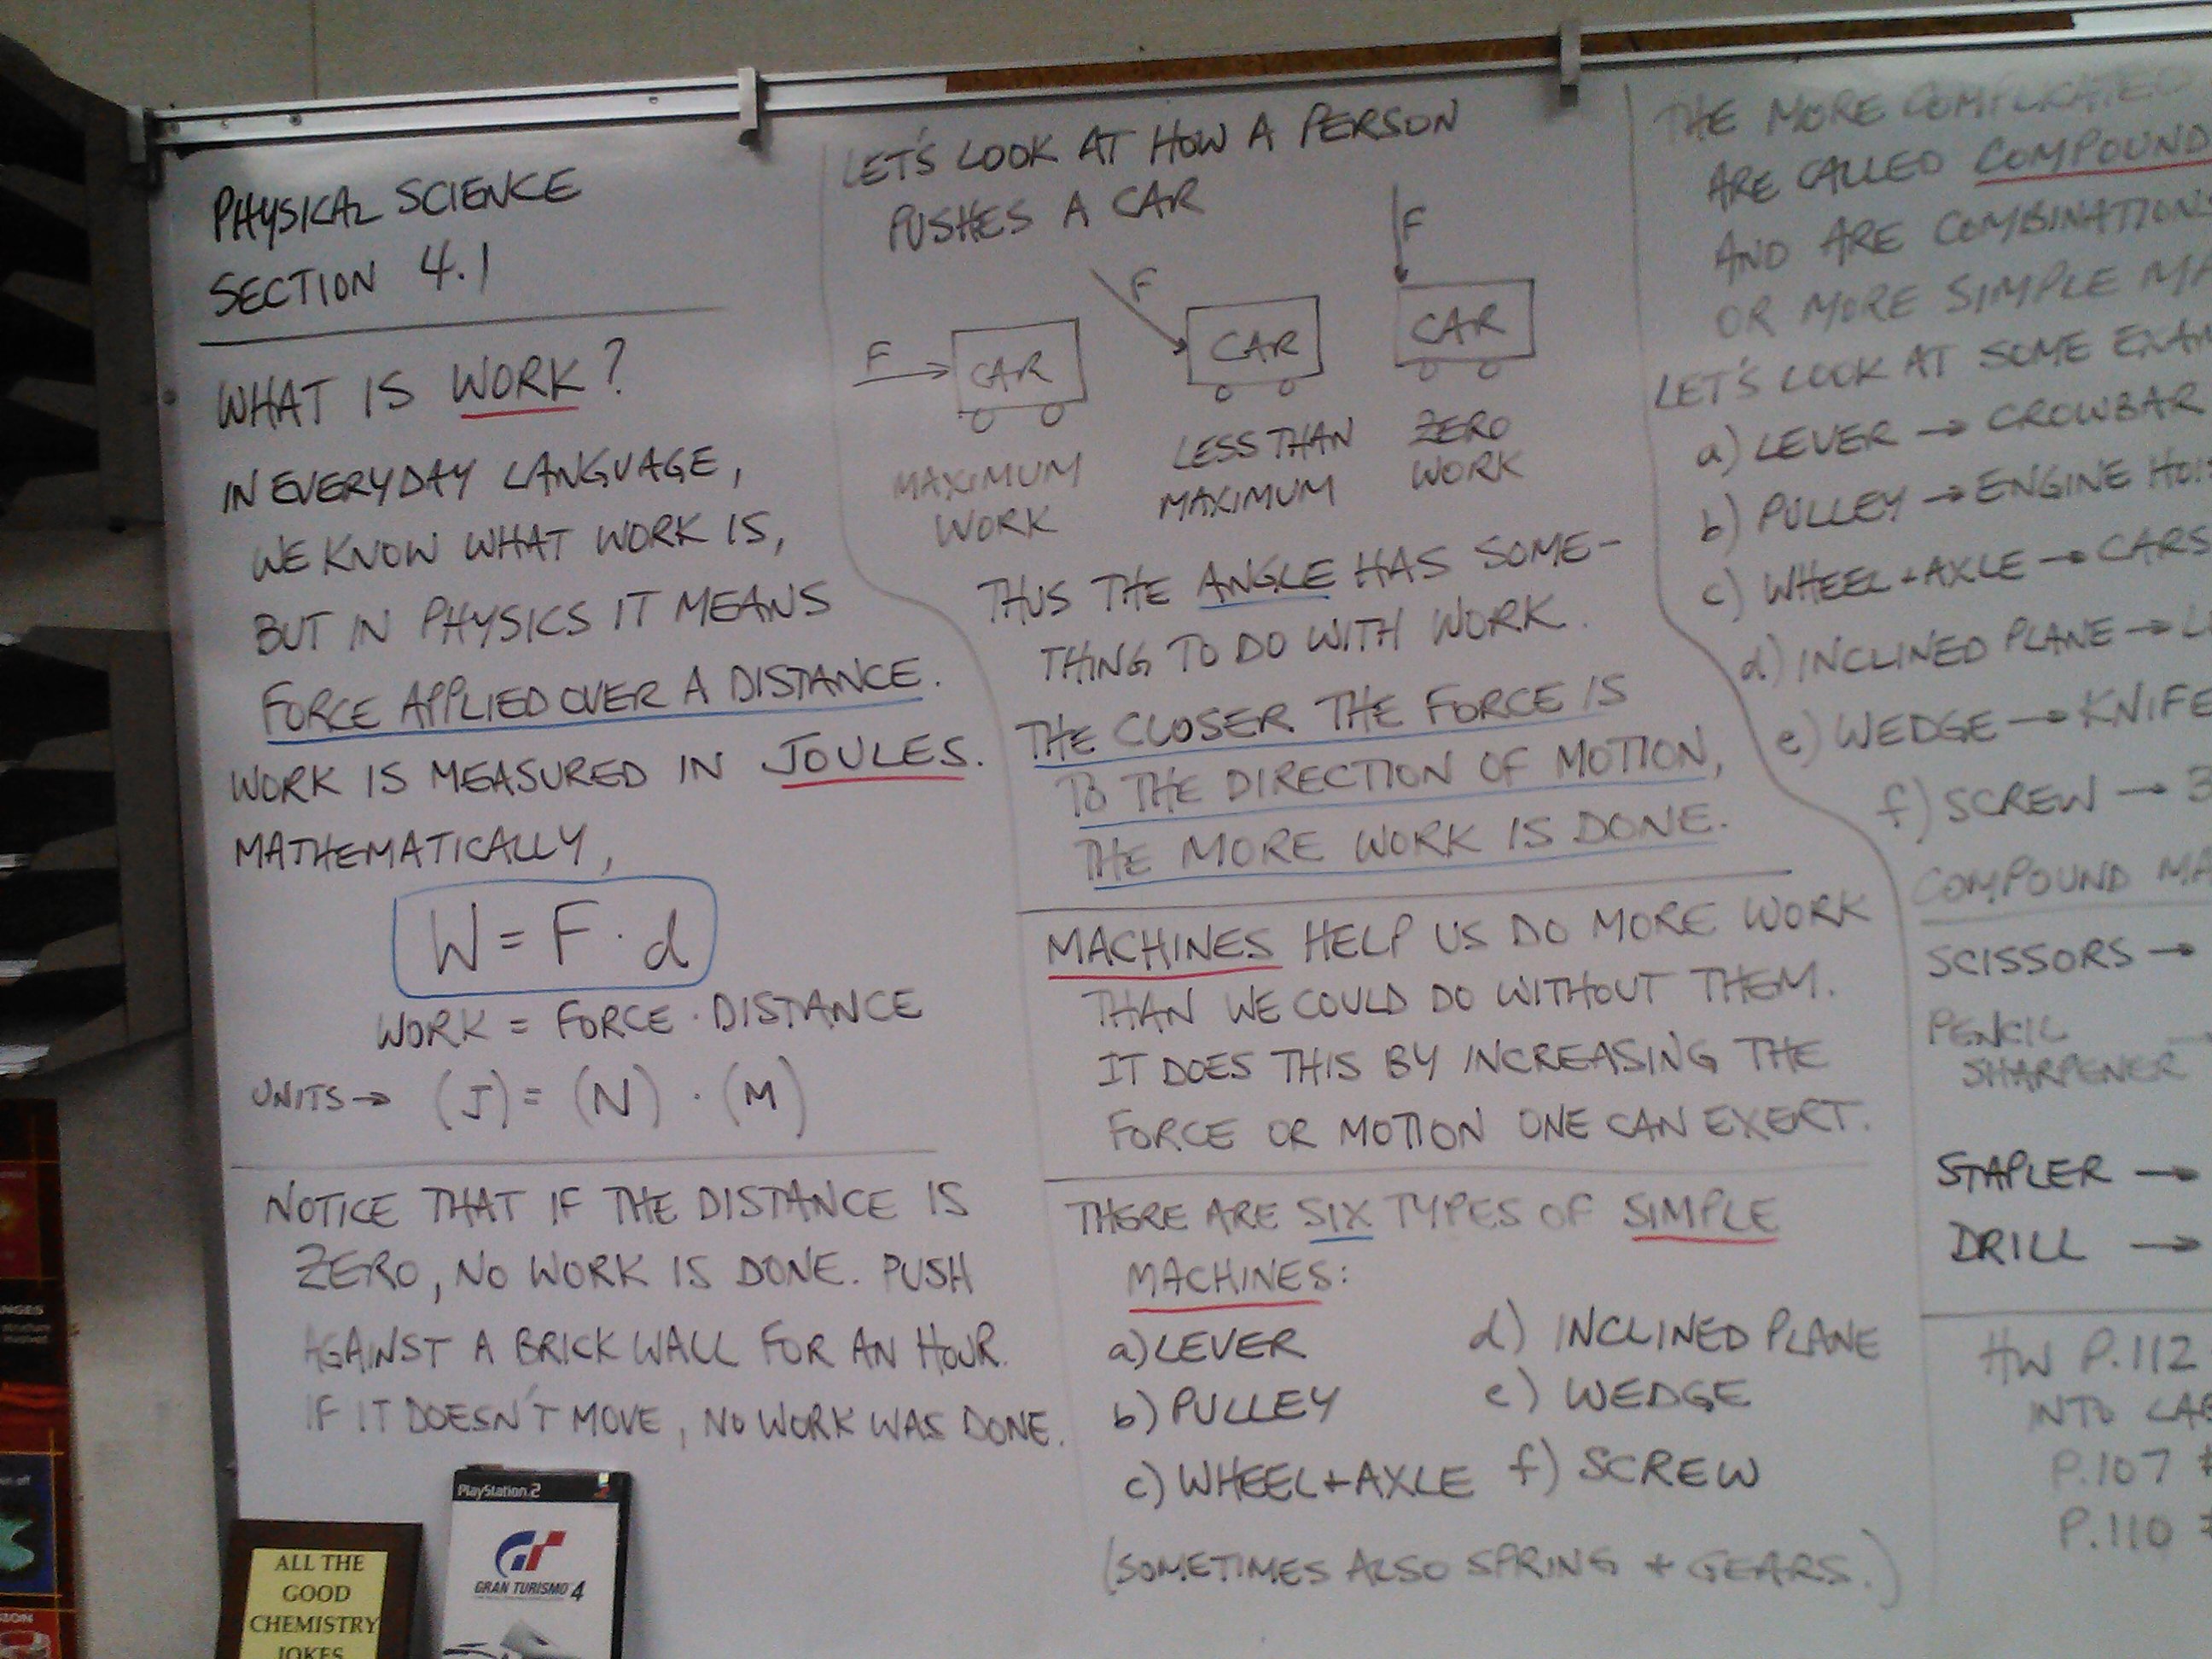 PHYSICAL SCIENCE
SECTION 4.1
WHAT IS WORK?
IN EVERYDAY LANGUAGE,
WE KNOW WHAT WORK IS,
BUT IN PHYSICS IT MEANS
FORCE APPLIED OVER A DISTANCE.
WORK IS MEASURED IN JOULES.
MATHEMATICALLY,
W = F · d
WORK = FORCE · DISTANCE
UNITS → (J) = (N) · (M)
NOTICE THAT IF THE DISTANCE IS
ZERO, NO WORK IS DONE. PUSH
AGAINST A BRICK WALL FOR AN HOUR.
IF IT DOESN'T MOVE, NO WORK WAS DONE.
LET'S LOOK AT HOW A PERSON
PUSHES A CAR
F
CAR
MAXIMUM
WORK
F
CAR
LESS THAN
MAXIMUM
F
CAR
ZERO
WORK
THUS THE ANGLE HAS SOME-
THING TO DO WITH WORK.
THE CLOSER THE FORCE IS
TO THE DIRECTION OF MOTION,
THE MORE WORK IS DONE.
MACHINES HELP US DO MORE WORK
THAN WE COULD DO WITHOUT THEM.
IT DOES THIS BY INCREASING THE
FORCE OR MOTION ONE CAN EXERT.
THERE ARE SIX TYPES OF SIMPLE
MACHINES:
a) LEVER
b) PULLEY
c) WHEEL + AXLE
d) INCLINED PLANE
e) WEDGE
f) SCREW
(SOMETIMES ALSO SPRING + GEARS.)
THE MORE COMPLICATED
ARE CALLED COMPOUND
AND ARE COMBINATIONS
OR MORE SIMPLE
LET'S LOOK AT SOME
a) LEVER → CROWBAR
b) PULLEY → ENGINE
c) WHEEL + AXLE → CARS
d) INCLINED PLANE →
e) WEDGE → KNIFE
f) SCREW →
COMPOUND
SCISSORS →
PENCIL
SHARPENER
STAPLER →
DRILL →
HW P.112
INTO
P.107
P.110
PlayStation 2
GT
GRAN TURISMO 4
ALL THE
GOOD
CHEMISTRY
JOKES